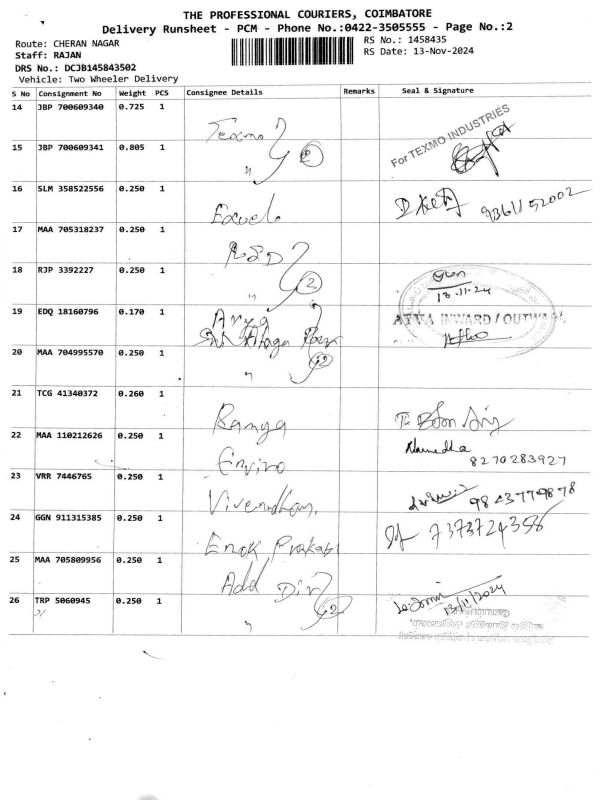 THE PROFESSIONAL COURIERS, COIMBATORE
Delivery Runsheet - PCM - Phone No.:0422-3505555 - Page No.:2
Route: CHERAN NAGAR
RS No.: 1458435
Staff: RAJAN
RS Date: 13-Nov-2024
DRS No.: DCJB145843502
Vehicle: Two Wheeler Delivery
S No Consignment No Weight PCS Consignee Details Remarks Seal & Signature
14 JBP 700609340 0.725 1 Texmo
For TEXMO INDUSTRIES
15 JBP 700609341 0.805 1 " 2
16 SLM 358522556 0.250 1 9361152002
17 MAA 705318237 0.250 1
18 RJP 3392227 0.250 1 " 2
13.11.24
19 EDQ 18160796 0.170 1 Arya
INWARD / OUTWARD
20 MAA 704995570 0.250 1 " 2
21 TCG 41340372 0.260 1 Ramya
22 MAA 110212626 0.250 1 Enviro
8270283927
23 VRR 7446765 0.250 1 9843779878
24 GGN 911315385 0.250 1 Enok Prakash 7373724358
25 MAA 705809956 0.250 1 Add Dir
26 TRP 5060945 0.250 1 " 2
13/11/2024